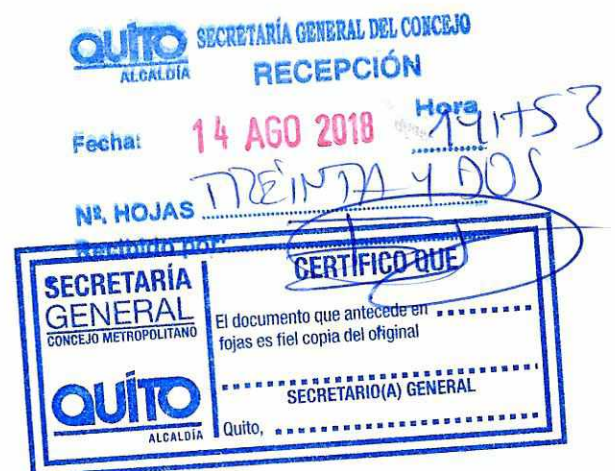 QUITO SECRETARÍA GENERAL DEL CONCEJO
ALCALDÍA RECEPCIÓN
Fecha: 14 AGO 2018 Hora 14H53
Nº. HOJAS TREINTA Y DOS
Recibido por:
SECRETARÍA
GENERAL
CONCEJO METROPOLITANO
QUITO
ALCALDÍA
CERTIFICO QUE
El documento que antecede en
fojas es fiel copia del original
SECRETARIO(A) GENERAL
Quito,